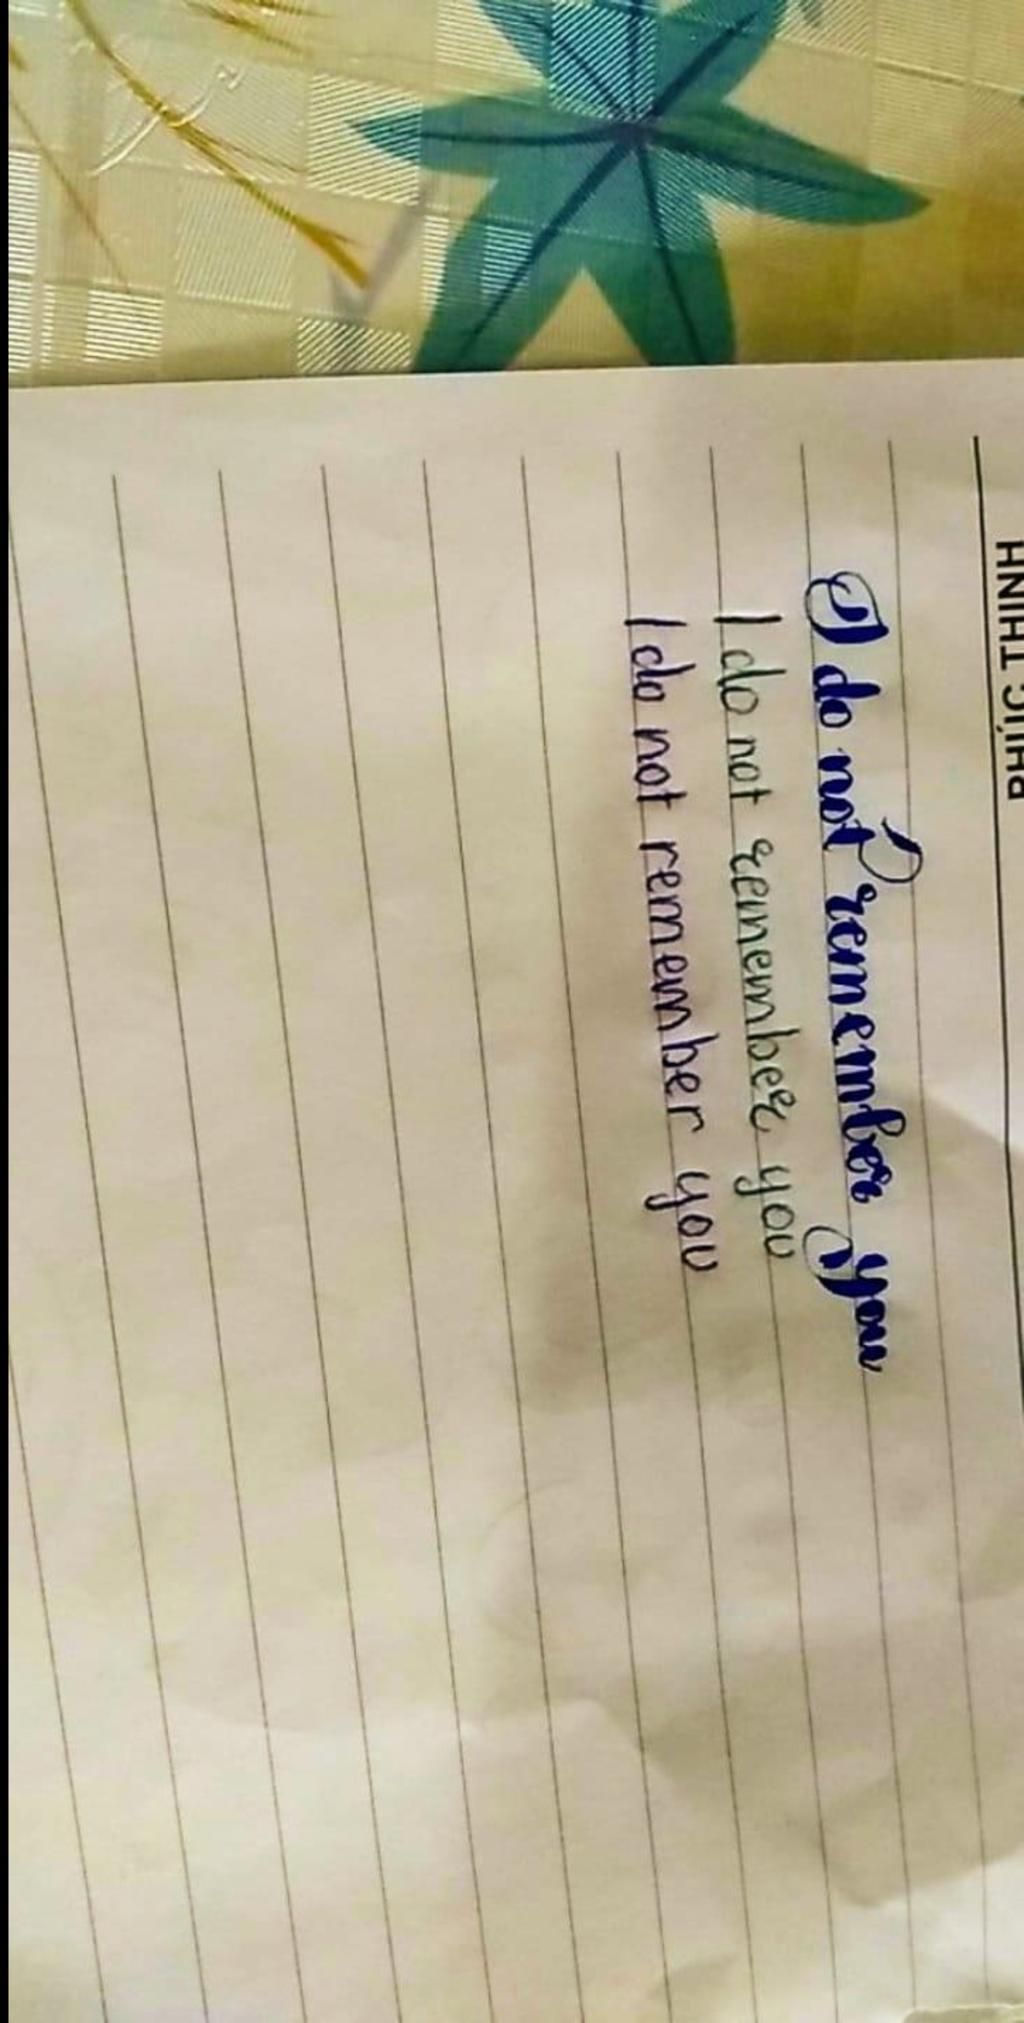 I do not remember you
I do not remember you
I do not remember you